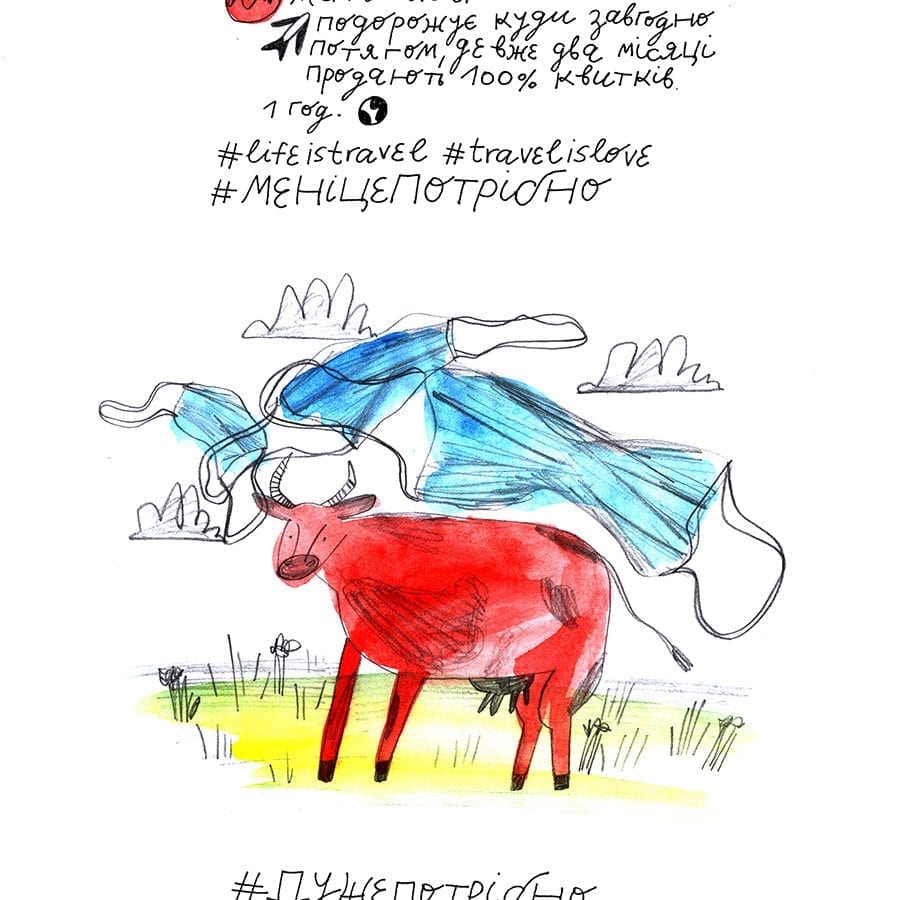 подорожує куди завгодно
потягом, де вже два місяці
продають 100% квитків.
1 год.
#lifeistravel #travelislove
#МЕНІЦЕПОТРІБНО
#ДУЖЕПОТРІБНО